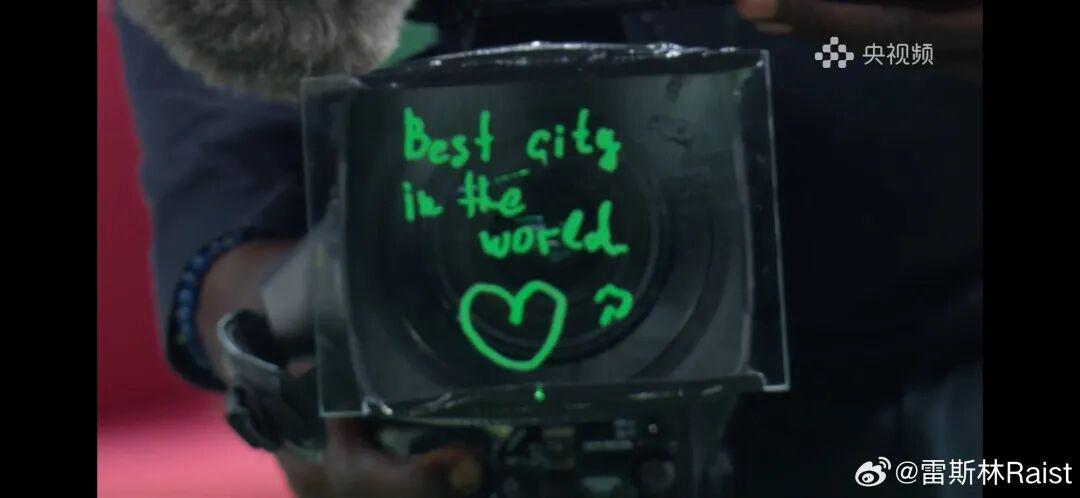 央视频
Best city
in the
world
@雷斯林Raist